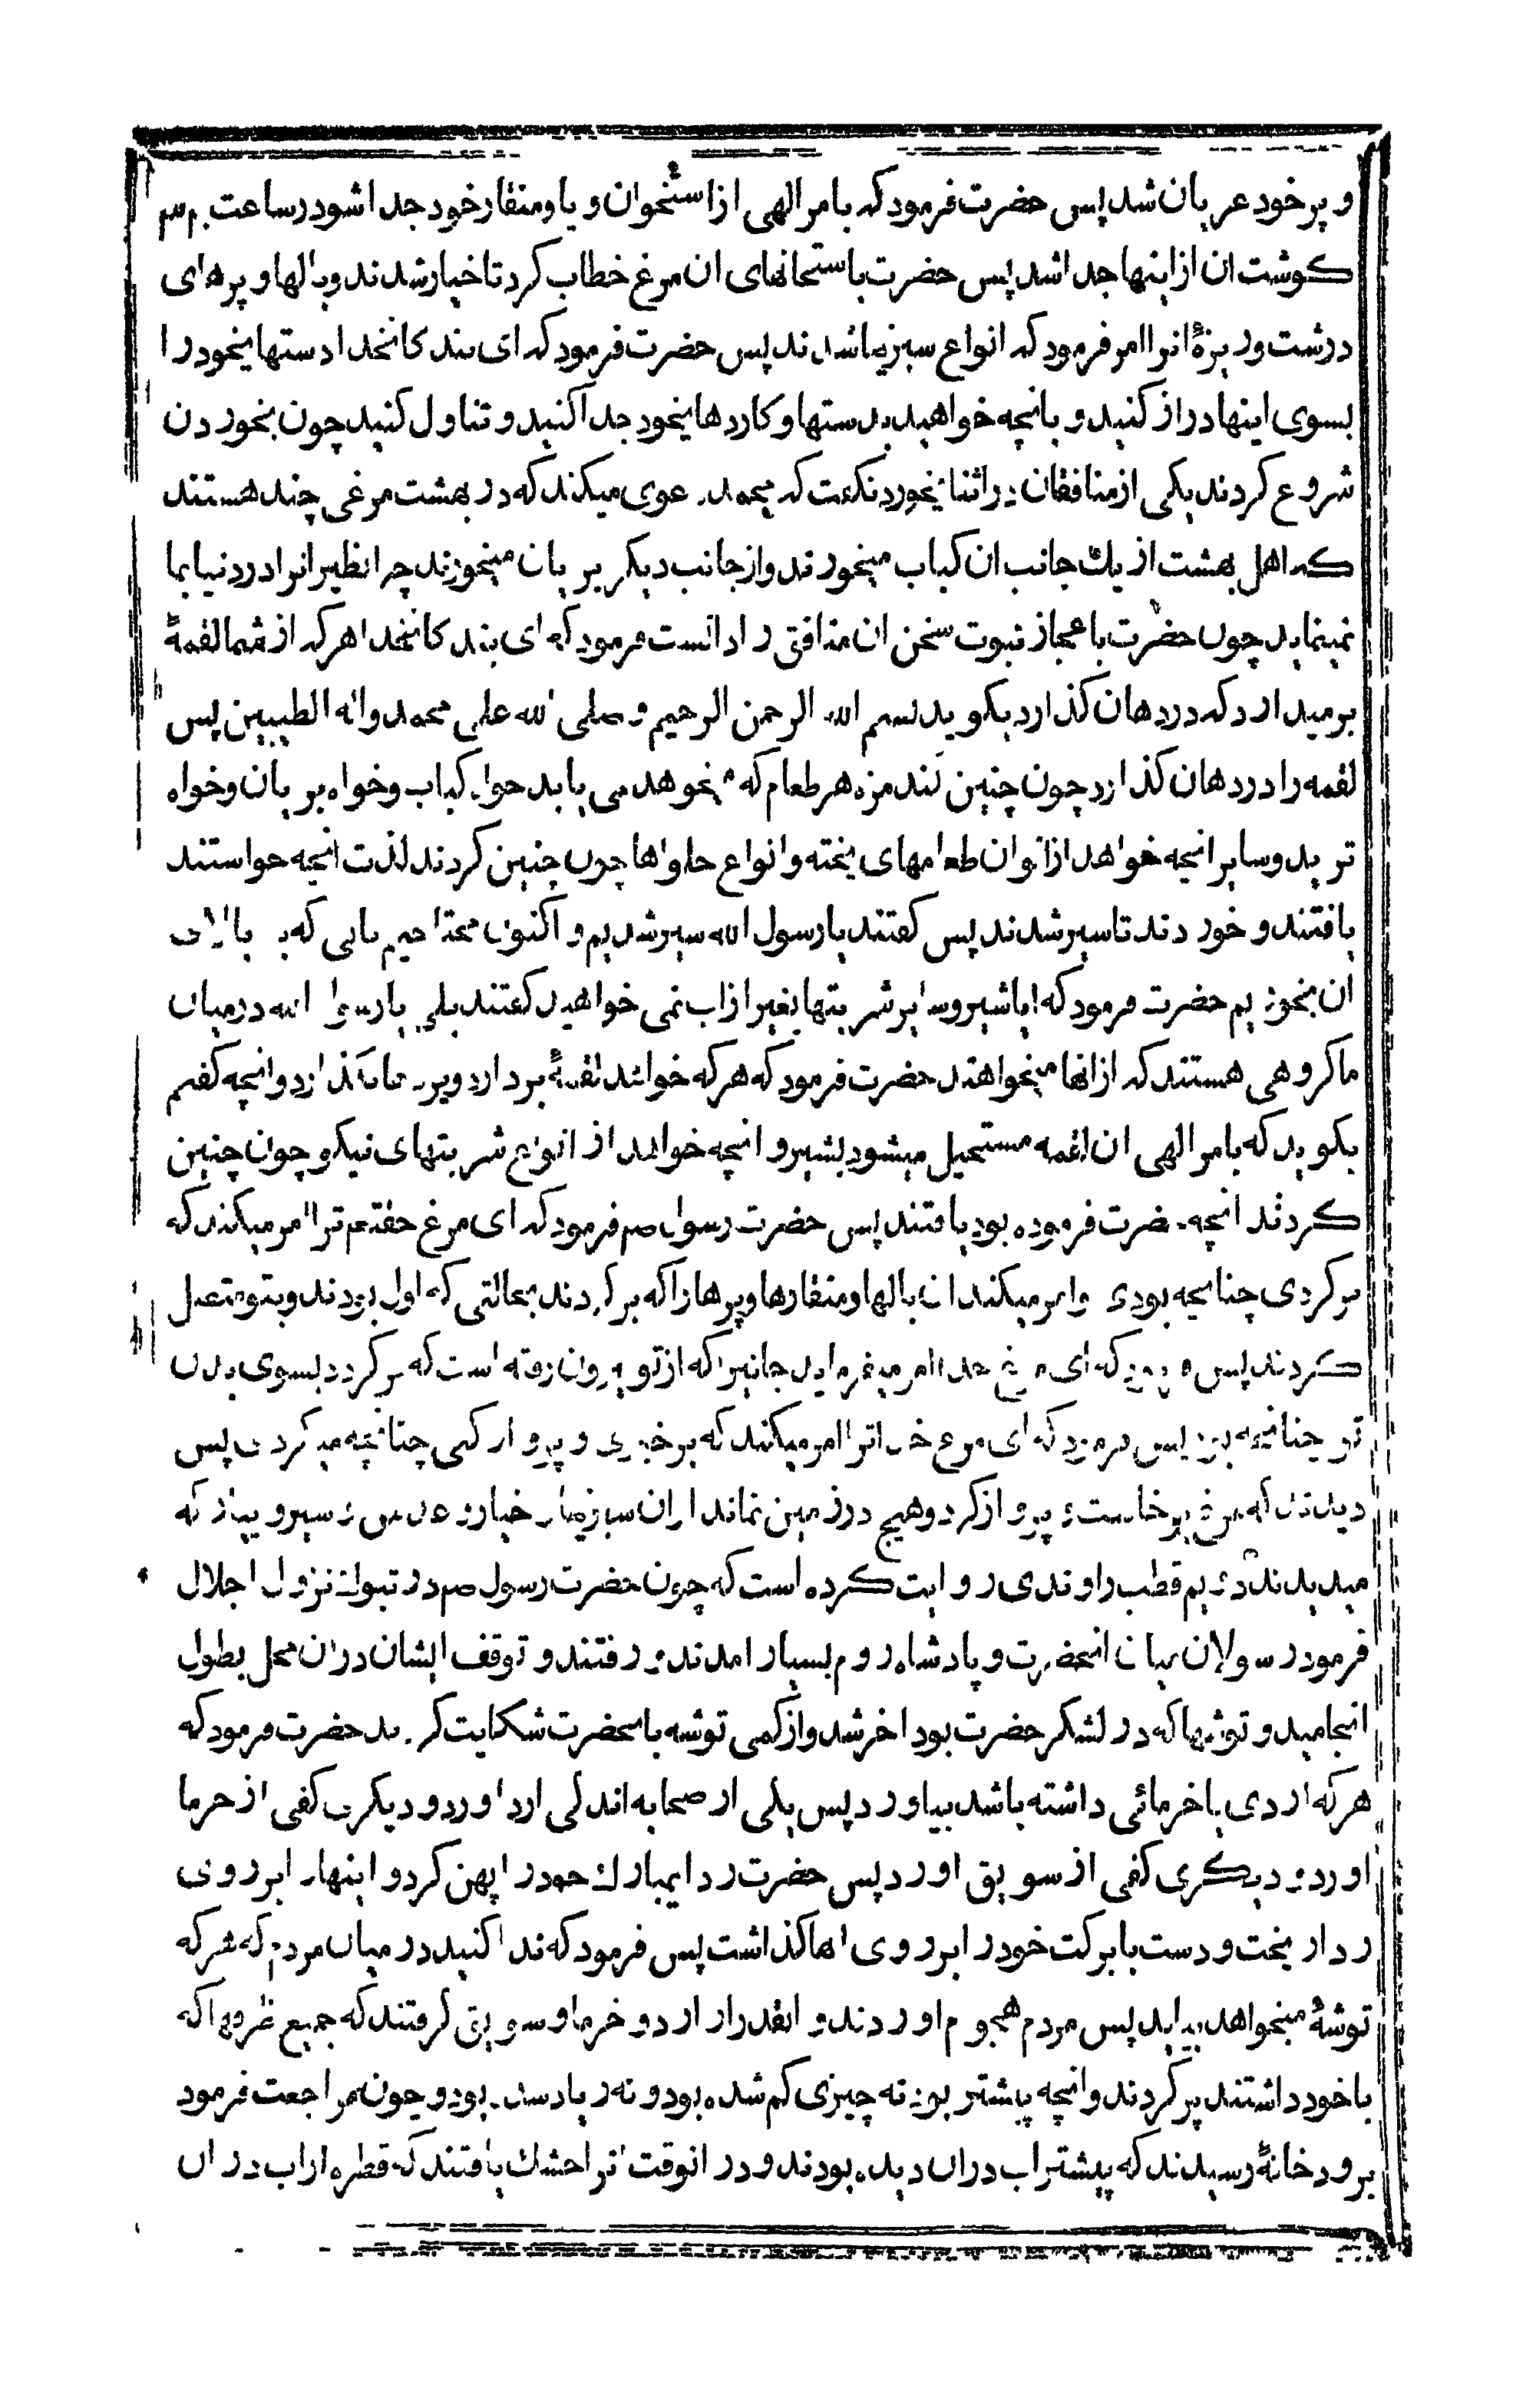 و پر خود عریان شد پس حضرت فرمود که بامر الهی از استخوان و پا و منقار خود جدا شو در ساعت
کوشت ان از اینها جدا شد پس حضرت باستخانهای ان مرغ خطاب کرد تا خیار شدند و بالها و پرهای
درشت و ریزهٔ انرا امر فرمود که انواع سبزیها شدند پس حضرت فرمود که ای بندکانخدا دستهایخود را
بسوی اینها دراز کنید و بانچه خواهید بدستها و کاردهایخود جدا کنید و تناول کنید چون بخوردن
شروع کردند یکی از منافقان در اثنا یخوردنکفت که محمد عوی میکند که در بهشت مرغی چند هستند
که اهل بهشت از یك جانب ان کباب میخورند و از جانب دیکر بریان میخورند چرا نظیر انرا در دنیا بما
نمینماید چون حضرت باعجاز نبوت سخن ان منافق را دانست فرمود که ای بندکانخدا هر که از شما لقمهٔ
برمیدارد که در دهان کذارد بکوید بسم الله الرحمن الرحیم و صلی الله علی محمد واله الطیبین پس
لقمه را در دهان کذارد چون چنین کند مزه هر طعام که میخوهد می یابد خواه کباب و خواه بریان و خواه
ترید و سایر انچه خواهد از الوان طعامهای پخته و انواع حلواها چون چنین کردند لذت انچه خواستند
یافتند و خوردند تا سیر شدند پس کفتند یا رسول الله سیر شدیم و اکنون محتاجیم بابی که بر بالای
ان بخوریم حضرت فرمود که ایا شیر و سایر شربتها بغیر از اب نمی خواهید کفتند بلی یا رسول الله در میان
ما کروهی هستند که از انها میخواهند حضرت فرمود که هر که خواهد لقمهٔ بردارد و در دهان کذارد و انچه کفتم
بکوید که بامر الهی ان لقمه مستحیل میشود بشیر و انچه خواهد از انواع شربتهای نیکو چون چنین
کردند انچه حضرت فرموده بود یافتند پس حضرت رسول صم فرمود که ای مرغ حقتعم ترا امر میکند که
برکردی چنانچه بودی و امر میکند ان بالها و منقارها و پرها را که برکردند بحالتی که اول بودند و بتو متصل
کردند پس فرمود که ای مرغ خدا امر میفرماید جانیرا که از تو بیرون رفته است که برکردد بسوی بدن
تو چنانچه بود پس فرمود که ای مرغ خدا ترا امر میکند که برخیزی و پرواز کنی چنانچه میکردی پس
دیدند که مرغ برخاست و پرواز کرد و هیچ در زمین نماند از ان سبزیها و خیار و عدس و سیر و پیاز که
میدیدند دویم قطب راوندی روایت کرده است که چون حضرت رسول صم در تبوك نزول اجلال
فرمود رسولان میان انحضرت و پادشاه روم بسیار امدند و رفتند و توقف ایشان در ان محل بطول
انجامید و توشها که در لشکر حضرت بود اخر شد و از کمی توشه بانحضرت شکایت کردند حضرت فرمود که
هر که اردی یا خرمائی داشته باشد بیاورد پس یکی از صحابه اندکی ارد اورد و دیکری کفی از خرما
اورد و دیکری کفی از سویق اورد پس حضرت ردا یمبارك خود را پهن کرد و اینها را بر روی
ردا ریخت و دست با برکت خود را بر روی انها کذاشت پس فرمود که ندا کنید در میان مردم که هر که
توشهٔ میخواهد بیاید پس مردم هجوم اوردند و انقدر از ارد و خرما و سویق کرفتند که جمیع ظروفها که
با خود داشتند پر کردند و انچه پیشتر بود نه چیزی کم شده بود و نه زیاد شده بود و چون مراجعت فرمود
برودخانهٔ رسیدند که پیشتر اب در ان دیده بودند و در انوقت انرا خشك یافتند که قطره از اب در ان